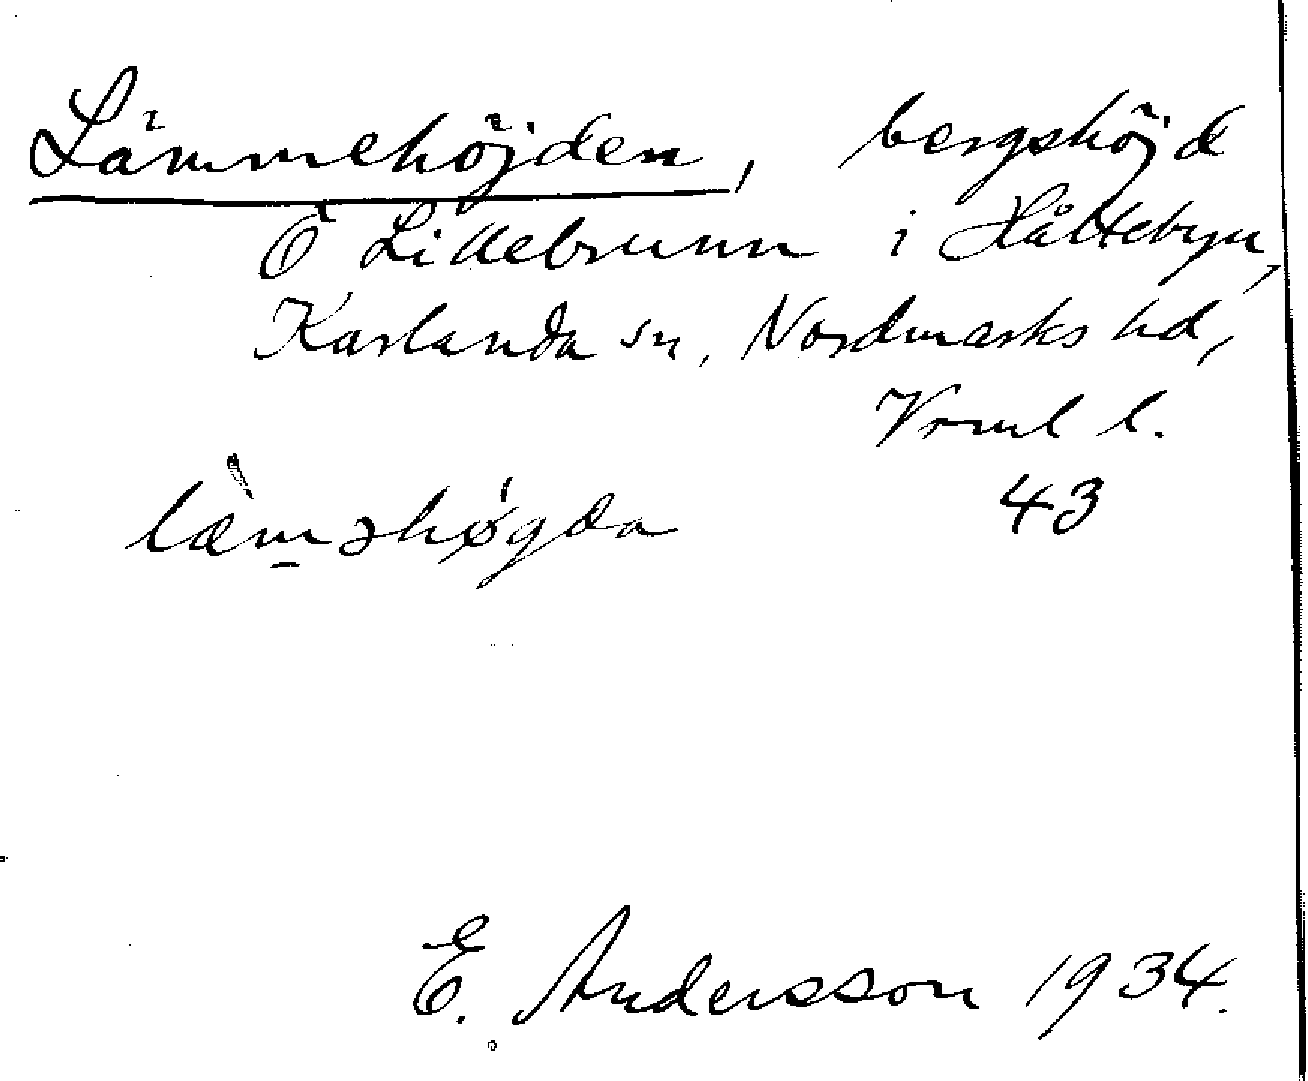 Lämmehöjden, bergshöjd
Ö Lillebrunn i Håltebyn,
Karlanda sn, Nordmarks hd,
Vrml l.
læ̀m̱əhø̍gda 43
E. Andersson 1934.